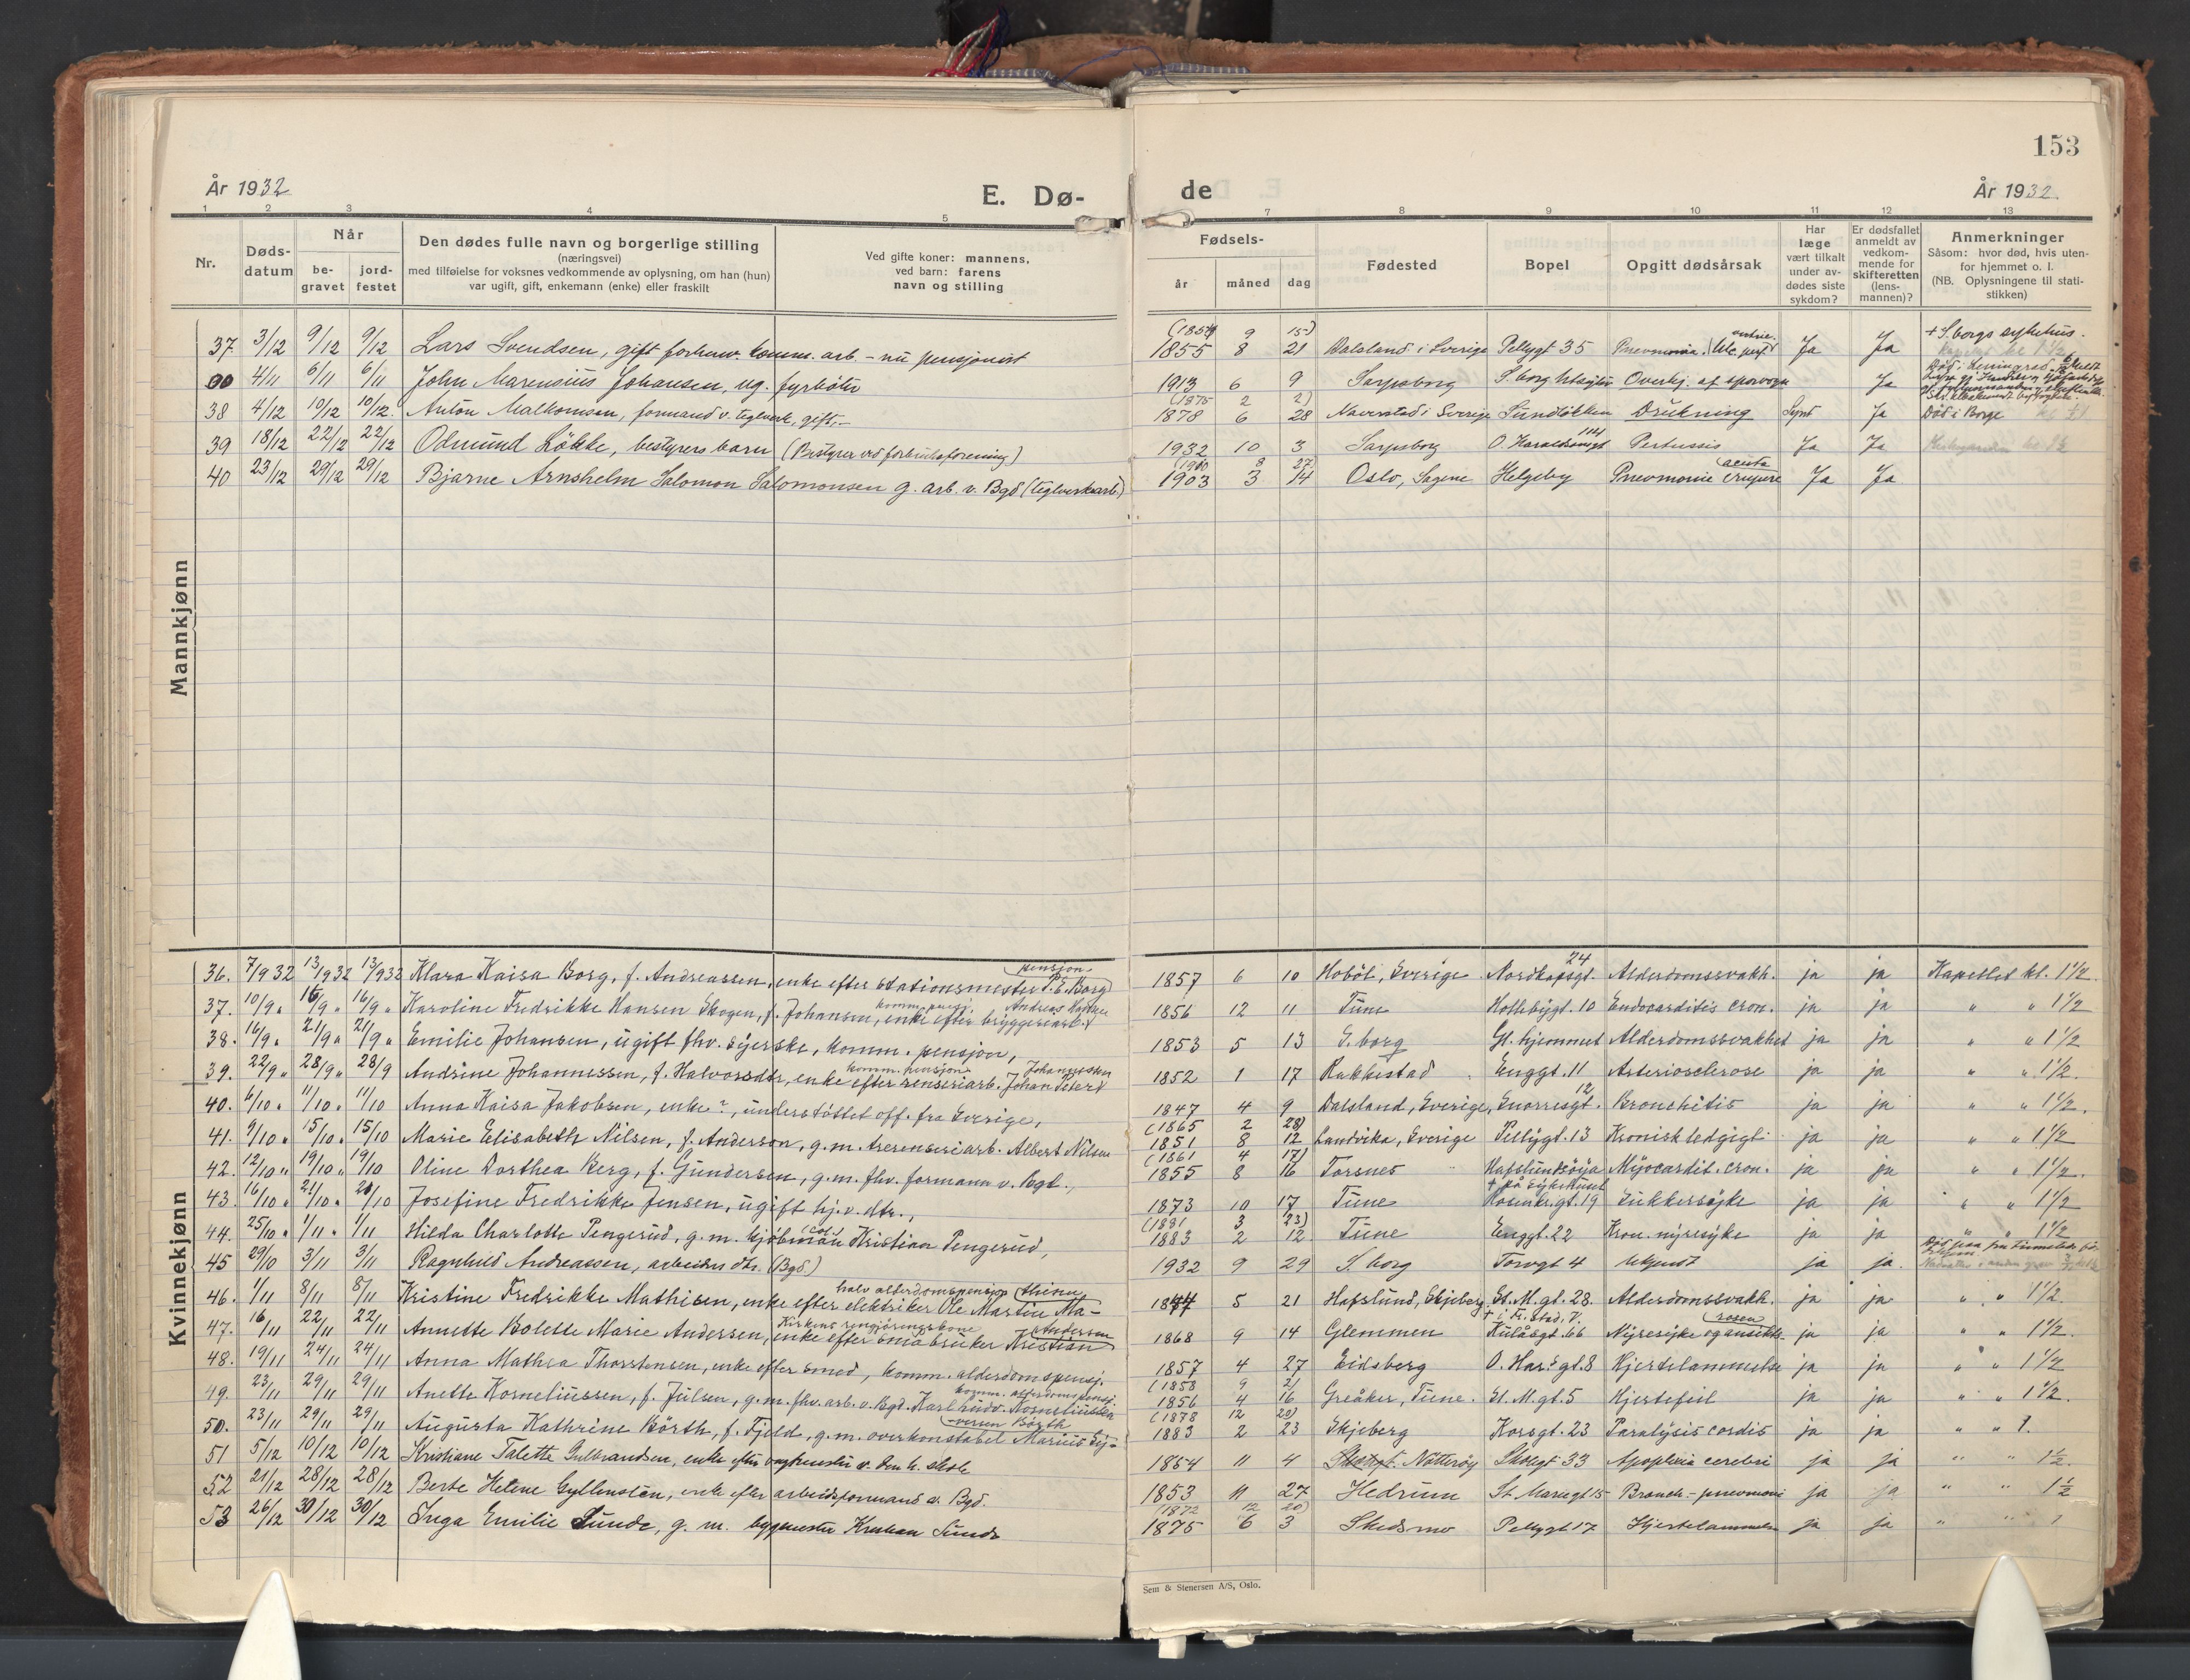 153
År 1932
E. Dø-
de
År 1932.
1 2 3 4 5 7 8 9 10 11 12 13
Nr.
Døds-
datum
Når
be-
gravet
jord-
festet
Den dødes fulle navn og borgerlige stilling
(næringsvei)
med tilføielse for voksnes vedkommende av oplysning, om han (hun)
var ugift, gift, enkemann (enke) eller fraskilt
Ved gifte koner: mannens,
ved barn: farens
navn og stilling
Fødsels-
år måned dag
Fødested
Bopel
Opgitt dødsårsak
Har
læge
vært tilkalt
under av-
dødes siste
sykdom?
Er dødsfallet
anmeldt av
vedkom-
mende for
skifteretten
(lens-
mannen)?
Anmerkninger
Såsom: hvor død, hvis uten-
for hjemmet o. l.
(NB. Oplysningene til stati-
stikken)
Mannkjønn
37 3/12 9/12 9/12 Lars Svendsen, gift forhenv. komm. arb. - nu pensjonist (1854 9 15) 1855 8 21 Dalsland i Sverige Pellygt 35 Pneumonia. Ja Ja + S.borgs sykehus.
00 4/11 6/11 6/11 John Marensius Johansen, ug. fyrbøter 1913 6 9 Sarpsborg Overkj. af sporvogn Ja
38 4/12 10/12 10/12. Anton Malkomsen, formand v. teglverk, gift,- (1875 2 2) 1878 6 28 Naverstad i Sverige Sundløkken Drukning Synt Ja Død i Borge
39 18/12 22/12 22/12 Odmund Løkke, bestyrers barn (Bestyrer ved forbruksforening) 1932 10 3 Sarpsborg O. Haraldsonsgt 114 Pertussis Ja Ja
40 23/12 29/12 29/12 Bjarne Arnshelm Salomon Salomonsen g. arb. v. Bgd (teglverksarb.) (1900 8 27 1903 3 14 Oslo, Sagene Helgeby Pnevmonie crupøse acuta Ja Ja
Kvinnekjønn
36. 7/9 32 13/9 32 13/9 32 Klara Kaisa Borg, f. Andreassen, enke efter stationsmester P. E. Borg pensjon 1857 6 10 Hoböl, Sverige Nordkapsgt. 24 Alderdomssvakh. ja ja Kapellet kl. 1 1/2
37. 10/9 " 16/9 " 16/9 " Karoline Fredrikke Hansen Skogen, f. Johansen, enke efter bryggeriarb. Andreas Hansen komm. pensj. 1856 12 11 Tune Holtebygt. 10 Endocarditis cron. ja ja " " 1 1/2
38. 16/9 " 21/9 " 21/9 " Emilie Johansen, ugift fhv. syerske, komm. pensjon, 1853 5 13 S.borg Gl. hjemmet Alderdomssvakhet ja ja " " 1 1/2
39. 22/9 " 28/9 " 28/9 Andrine Johannessen, f. Halvorsdtr, enke efter renseriarb. Johan Peter Johannessen komm. pensjon 1852 1 17 Rakkestad Enggt. 11 Arteriosclerose ja ja " " 1 1/2.
40. 6/10 " 11/10 " 11/10 Anna Kaisa Jakobsen, enke?, understøttet off. fra Sverige, 1847 4 9 Dalsland, Sverige, Snorresgt. 12 Bronchitis ja ja " " 1 1/2.
41. 9/10 " 15/10 " 15/10 Marie Elisabeth Nilsen, f. Anderson, g.m. trerenseriarb. Albert Nilsen (1865 2 28) 1851 8 12 Landvika, Sverige Pellygt. 13 Kronisk ledgigt ja ja " " 1 1/2
42. 12/10 " 19/10 " 19/10 Oline Dorthea Berg, f. Gundersen, g.m. fhv. formann v. Bgd., (1861 4 17) 1855 8 16 Torsnes Hafslundsøya Myocardit. cron. ja ja " " 1 1/2.
43. 16/10 " 21/10 " 21/10 Josefine Fredrikke Jensen, ugift hj.v. dtr., 1873 10 17 Tune + på Sykehuset Rosenkr.gt. 19 Sukkersyke ja ja " " 1 1/2
44. 25/10 " 1/11 " 1/11 Hilda Charlotte Pengerud, g.m. kjøbman Kristian Pengerud, (1881 3 23) 1883 2 12 Tune Enggt. 22 Kron. nyresyke ja ja " " 1 1/2
45 29/10 3/11 3/11 Ragnhild Andreassen, arbeiders dtr. (Bgd) 1932 9 29 S.borg Torvgt 4 Ukjendt ja ja.
46. 1/11 8/11 8/11 Kristine Fredrikke Mathisen, enke efter elektriker Ole Martin Ma- thisen halv alderdomspensjon 1844 5 21 Hafslund, Skjeberg St. M. gt. 28. Alderdomssvakh. ja ja " " 1 1/2.
47. 16/11 22/11 22/11 Annette Bolette Marie Andersen, enke efter småbruker Kristian Andersen Kirkens rengjøringskone 1868 9 14 Glemmen + i Fr.stad, V. Kulåsgt. 66 Nyresyke og ansikts- rosen ja ja " " 1 1/2.
48. 19/11 24/11 24/11 Anna Mathea Thorstensen, enke efter smed, komm. alderdomspensj. 1857 4 27 Eidsberg O. Har.s gt. 8 Hjertelammelse ja ja " " 1 1/2
49. 23/11 29/11 29/11 Anette Korneliussen, f. Julsen, g.m. fhv. arb. v. Bgd. Karl Ludv. Korneliussen komm. alderdomspensj. (1858 9 21 1856 4 16 Greåker, Tune. St. M. gt. 5 Hjertefeil ja ja " " 1 1/2.
50. 23/11 29/11 29/11 Augusta Kathrine Börth, f. Fjeld, g.m. overkonstabel Marius Sy- versen Börth (1878 12 20) 1883 2 23 Skjeberg Korsgt. 23 Paralysis cordis ja ja " " 1.
51 5/12 10/12 10/12 Kristiane Talette Gulbrandsen, enke efter vagtmester v. den h. skole 1854 11 4 Nøtterøy Skolegt 33 Apoplexia cerebri ja ja " " 1 1/2.
52 21/12 28/12 28/12 Berte Helene Gyllensten, enke efter arbeidsformand v. Bgd. 1853 11 27 Hedrum St. Mariegt 15 Bronch.-pneumoni ja ja " " 1 1/2
53 26/12 30/12 30/12 Inga Emilie Sunde, g. m. bygmester Kristian Sunde (1872 12 20) 1875 6 3 Skedsmo Pellygt 17 Hjertelammelse ja ja " " 1
Sem & Stenersen A/S, Oslo.